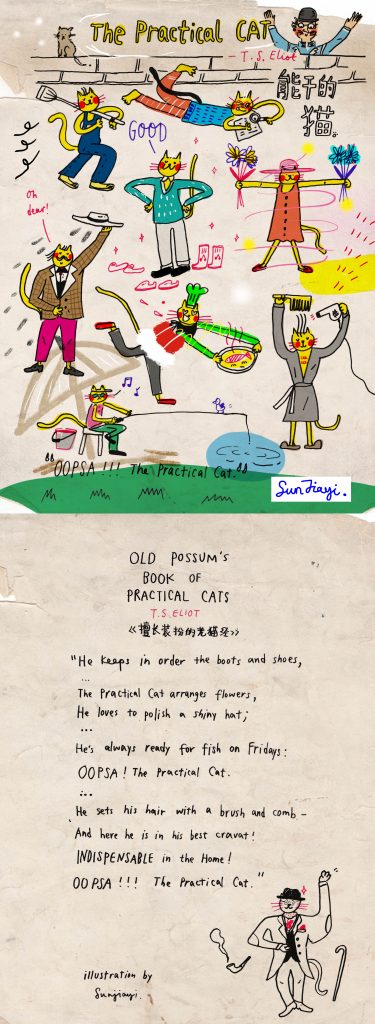 The Practical CAT
— T.S. Eliot
能干的
猫。
GOOD
Oh
dear!
"OOPSA!!! The Practical Cat."
SunJiayi.
OLD POSSUM'S
BOOK OF
PRACTICAL CATS
T.S. ELIOT
《擅长装扮的老猫经》
"He keeps in order the boots and shoes,
...
The Practical Cat arranges flowers,
He loves to polish a shiny hat;
...
He's always ready for fish on Fridays:
OOPSA! The Practical Cat.
...
He sets his hair with a brush and comb –
And here he is in his best cravat!
INDISPENSABLE in the Home!
OOPSA!!! The Practical Cat."
illustration by
Sunjiayi.